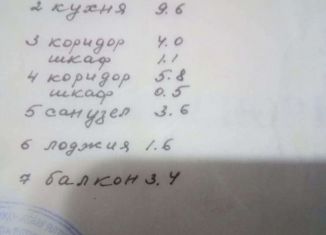 2 кухня 9.6
3 коридор 4.0
шкаф 1.1
4 коридор 5.8
шкаф 0.5
5 санузел 3.6
6 лоджия 1.6
7 балкон 3.4